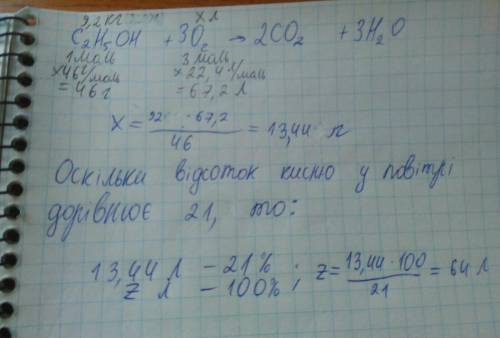 9,2 кг x л
C₂H₅OH + 3O₂ → 2CO₂ + 3H₂O
1 моль 3 моль
×46 г/моль ×22,4 л/моль
= 46 г = 67,2 л
X = 92 · 67,2 / 46 = 13,44 л
Оскільки відсоток кисню у повітрі
дорівнює 21, то:
13,44 л – 21% ; z = 13,44 · 100 / 21 = 64 л
z л – 100%